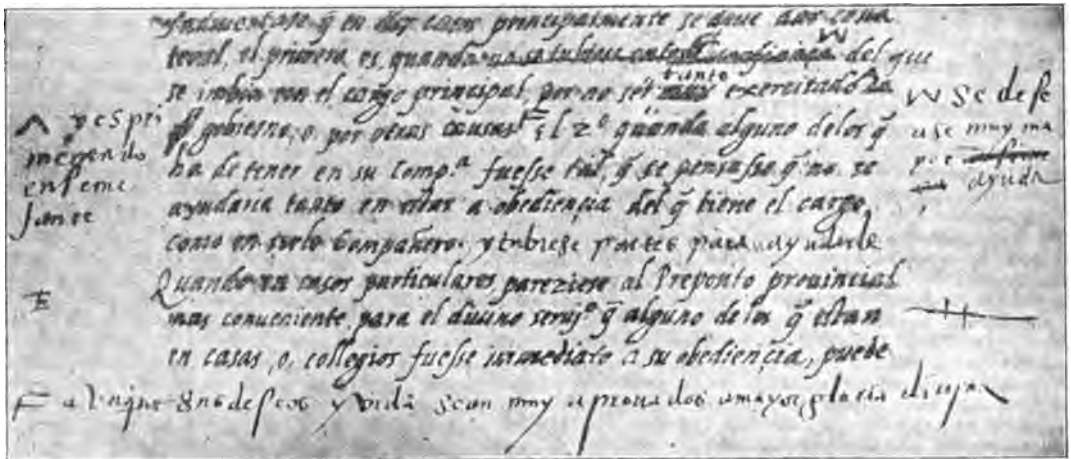 q̃ en dos casos principalmente se deue dar cola
teral, el primero es, quando del que
se imbia con el cargo principal, por no ser tanto exercitado en
gobierno, o por otras causas el 2º quando alguno delos q̃
ha de tener en su comp.ª fuesse tal, q̃ se pensasse q̃ no se
ayudaria tanto en estar a obediençia del q̃ tiene el cargo,
como en serle Compañero. y tubiese partes para ayudarle
Quando en casos particulares pareziese al Preposito prouincial
mas conueniente para el diuino seruiº q̃ alguno de los q̃ estan
en casas, o, collegios fuesse immediato a su obediençia, puede
avnque sus deseos y vida sean muy aprouados a mayor gloria diuina
y espri
mentado
en seme
jante
se dese
ase muy ma
yor
ayuda